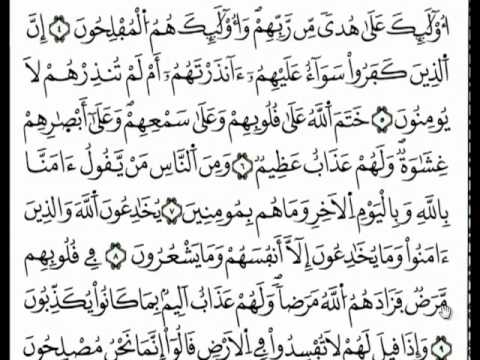 اُوْلَٰٓئِكَ عَلَىٰ هُدىٗ مِّن رَّبِّهِمْ وَأُوْلَٰٓئِكَ هُمُ اُلْمُفْلِحُونَ ٤ إِنَّ
اَلذِينَ كَفَرُواْ سَوَآءٌ عَلَيْهِمُۥٓ ءَآنذَرْتَهُمُۥٓ أَمْ لَمْ تُنذِرْهُمْ لَا
يُومِنُونَ ٥ خَتَمَ اَللَّهُ عَلَىٰ قُلُوبِهِمْ وَعَلَىٰ سَمْعِهِمْ وَعَلَىٰٓ أَبْصَٰرِهِمْ
غِشَٰوَةٌ وَلَهُمْ عَذَابٌ عَظِيمٌ ٦ وَمِنَ اَلنَّاسِ مَنْ يَّقُولُ ءَامَنَّا
بِاللَّهِ وَبِالْيَوْمِ اِلَاخِرِ وَمَا هُم بِمُومِنِينَ ٧ يُخَٰدِعُونَ اَللَّهَ وَالذِينَ
ءَامَنُواْ وَمَا يُخَٰدِعُونَ إِلَّآ أَنفُسَهُمْ وَمَا يَشْعُرُونَ ٨ فِے قُلُوبِهِم
مَّرَضٌ فَزَادَهُمُ اُللَّهُ مَرَضاً وَلَهُمْ عَذَابٌ اَلِيمٌۢ بِمَا كَانُواْ يُكَذِّبُونَ
٩ وَإِذَا قِيلَ لَهُمْ لَا تُفْسِدُواْ فِے اِلَارْضِ قَالُوٓاْ إِنَّمَا نَحْنُ مُصْلِحُونَ